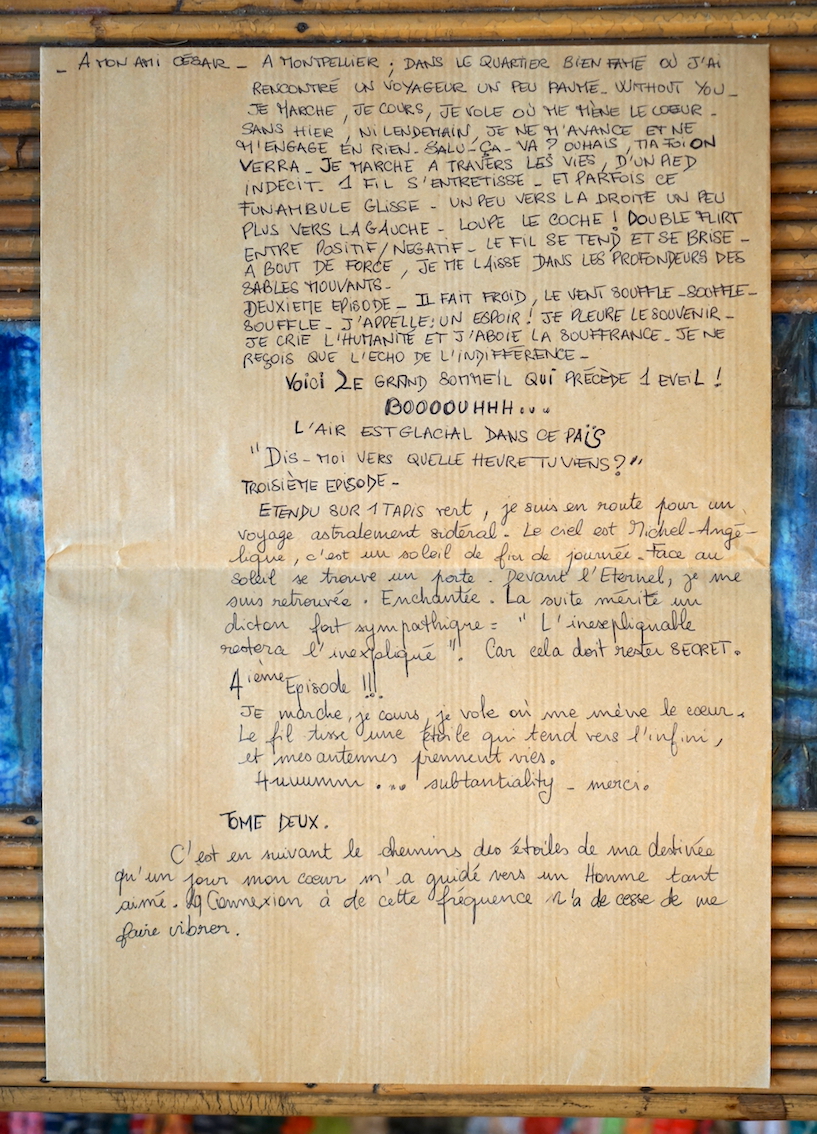 _ A MON AMI CÉSAR _ A MONTPELLIER ; DANS LE QUARTIER BIEN FAMÉ OÙ J'AI
RENCONTRÉ UN VOYAGEUR UN PEU PAUMÉ_ WITHOUT YOU_
JE MARCHE, JE COURS, JE VOLE OÙ ME MÈNE LE COEUR_
SANS HIER, NI LENDEMAIN, JE NE M'AVANCE ET NE
M'ENGAGE EN RIEN_ SALU_ÇA_VA ? OUHAIS, MA FOI ON
VERRA_ JE MARCHE A TRAVERS LES VIES, D'UN PIED
INDECIT_ 1 FIL S'ENTRETISSE_ ET PARFOIS CE
FUNAMBULE GLISSE_ UN PEU VERS LA DROITE UN PEU
PLUS VERS LA GAUCHE_ LOUPE LE COCHE ! DOUBLE FLIRT
ENTRE POSITIF/NEGATIF_ LE FIL SE TEND ET SE BRISE_
A BOUT DE FORCE, JE ME LAISSE DANS LES PROFONDEURS DES
SABLES MOUVANTS_
DEUXIEME EPISODE_ IL FAIT FROID, LE VENT SOUFFLE_SOUFFLE_
SOUFFLE_ J'APPELLE: UN ESPOIR ! JE PLEURE LE SOUVENIR_
JE CRIE L'HUMANITÉ ET J'ABOIE LA SOUFFRANCE_ JE NE
REÇOIS QUE L'ECHO DE L'INDIFFERENCE_
Voici LE GRAND SOMMEIL QUI PRÉCÈDE 1 EVEIL !
BOOOOUHHH...
L'AIR EST GLACIAL DANS CE PAÏS
"DIS_MOI VERS QUELLE HEURE TU VIENS ?"
TROISIÈME EPISODE_
ETENDU SUR 1 TAPIS vert, je suis en route pour un
voyage astralement sidéral. Le ciel est Michel-Angé-
lique, c'est un soleil de fin de journée. Face au
soleil se trouve un porte. Devant l'Eternel, je me
suis retrouvée. Enchantée. La suite mérite un
dicton fort sympathique = "L'inexpliquable
restera l'inexpliqué". Car cela doit rester SECRET.
4ième Episode !!!
JE marche, je cours, je vole où me mève le coeur.
Le fil tisse une étoile qui tend vers l'infini,
et mes antennes prennent vies.
Huuummm ... substantiality _ merci.
TOME DEUX.
C'est en suivant le chemins des étoiles de ma destivée
qu'un jour mon coeur m'a guidé vers un Homme tant
aimé. la Connexion à de cette fréquence n'a de cesse de me
faire vibrer.